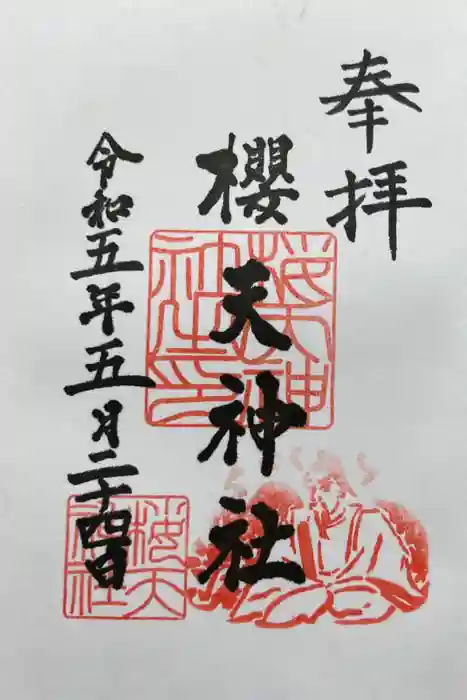 奉拝
櫻天神社
令和五年五月二十四日
桜天神社之印
桜天神社